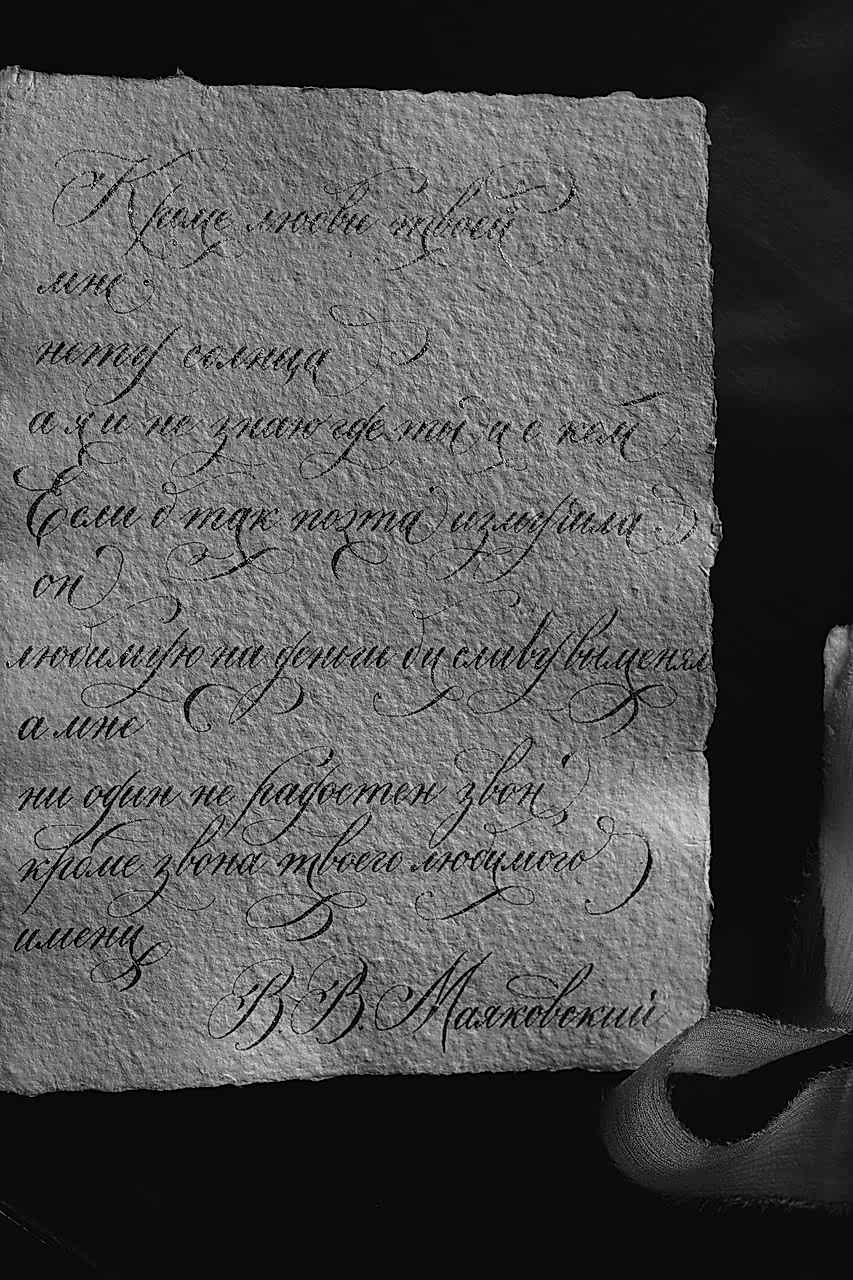 Кроме любви твоей
мне
нету солнца
а я и не знаю где ты и с кем
Если б так поэта измучила
он
любимую на деньги бы славу выменял
а мне
ни один не радостен звон
кроме звона твоего любимого
имени
В. В. Маяковский